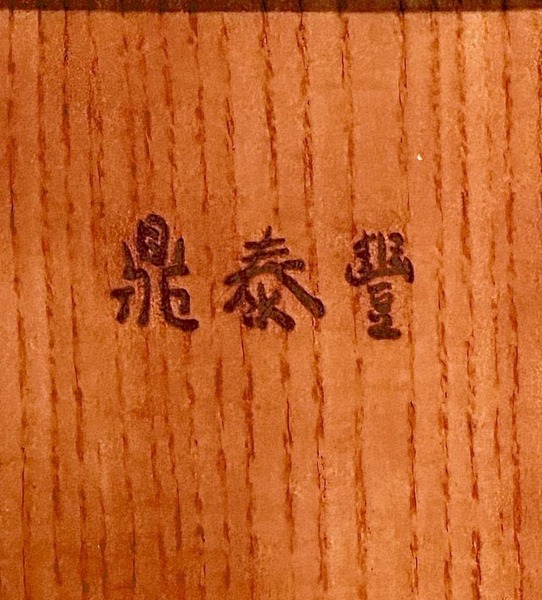 鼎泰豐